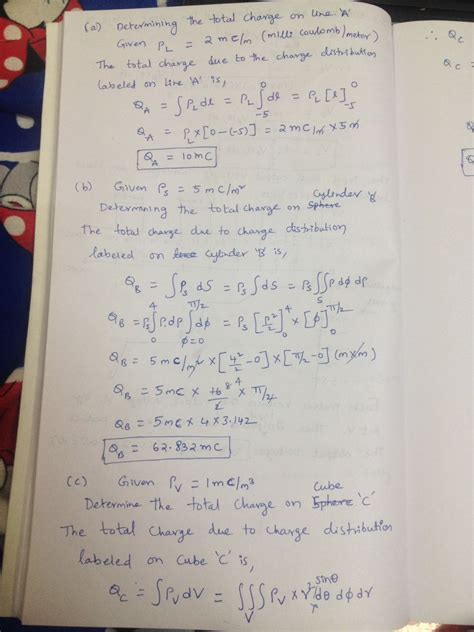 (a) Determining the total charge on line 'A'
Given ρL = 2 mC/m (milli coulomb/meter)
The total charge due to the charge distribution
labeled on line 'A' is,
QA = ∫ρL dl = ρL ∫₋₅⁰ dl = ρL [l]₋₅⁰
QA = ρL × [0-(-5)] = 2mC/m × 5m
QA = 10mC
(b) Given ρS = 5 mC/m²
Determining the total charge on Sphere Cylender 'B'
The total charge due to charge distribution
labeled on line Cylender 'B' is,
QB = ∫ρS dS = ρS ∫dS = ρS ∬S ρ dφ dρ
QB = ρS ∫₀⁴ ρ.dρ ∫φ=0^π/2 dφ = ρS [ρ²/2]₀⁴ × [φ]₀^π/2
QB = 5mC/m² × [4²/2 - 0] × [π/2 - 0] (m×m)
QB = 5mC × 16 8/2 4 × π/2
QB = 5mC × 4 × 3.142
QB = 62.832 mC
(c) Given ρV = 1mC/m³
Determine the total charge on Sphere Cube 'C'
The total charge due to charge distribution
labeled on Cube 'C' is,
QC = ∫ρV dV = ∭V ρV × r² sinθ dθ dφ dr
∴ QC
QC =